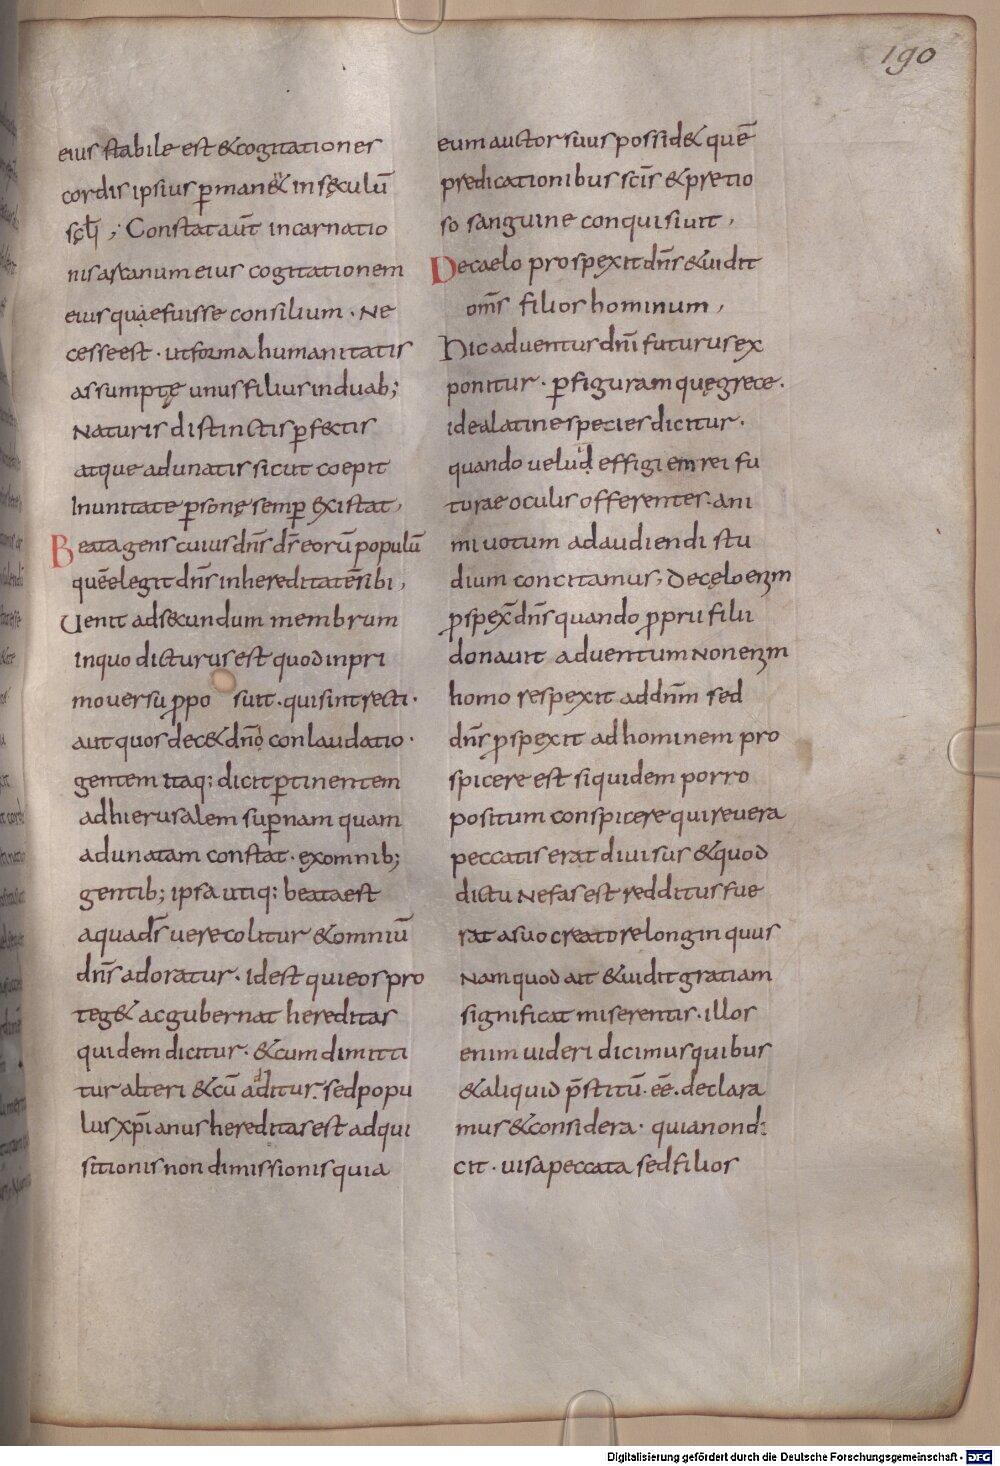 190
eius stabile est & cogitationes
cordis ipsius p̲man& in sęculū
sc̨l̄i ; Constat aūt incarnatio
nis arcanum eius cogitationem
eius quae fuisse consilium · Ne
cesse est · ut forma humanitatis
assumptę unus filius induab;
Naturis distinctis p̲fectis
atque adunatis sicut coepit
In unitate p̲sonę semp̲ existat,
Beata gens cuius dn̄s d̄s eorū populū
quē elegit dn̄s in hereditatē sibi,
Uenit ad secundum membrum
In quo dicturus est quod in pri
mo uersu p̲posuit · qui sint recti ·
aut quos dec& dn̄o conlaudatio ·
gentem itaq: dicit p̲tinentem
ad hierusalem sup̲nam quam
adunatam constat · ex omnib;
gentib; ipsa utiq: beata est
a qua d̄s uere colitur & omniū
dn̄s adoratur · id est qui eos pro
teg& ac gubernat hereditas
quidem dicitur · & cum dimitti
tur alteri & cū aditur · sed popu
lus xp̄ianus hereditas est adqui
sitionis non dimissionis quia
eum auctor suus possid& quē
predicationibus sc̄is & pretio
so sanguine conquisiuit,
De caelo prospexit dn̄s & uidit
om̄s filios hominum,
Hic aduentus dn̄i futurus ex
ponitur · p̲ figuram quę grece ·
idea latine species dicitur ·
quando uelud effigiem rei fu
turae oculis offerentes · ani
mi uotum ad audiendi stu
dium concitamus; De cęlo enim
p̲spex̄ dn̄s quando p̲prii filii
donauit aduentum Non enim
homo respexit ad dn̄m sed
dn̄s p̲spexit ad hominem pro
spicere est siquidem porro
positum conspicere qui reuera
peccatis erat diuisus & quod
dictu Nefas est redditus fue
rat a suo creatore longinquus
Nam quod ait & uidit gratiam
significat miserentis · illos
enim uideri dicimus quibus
& aliquid p̄stitū · eē · declara
mus & considera · quia non di
cit · uisa peccata sed filios
Digitalisierung gefördert durch die Deutsche Forschungsgemeinschaft - DFG